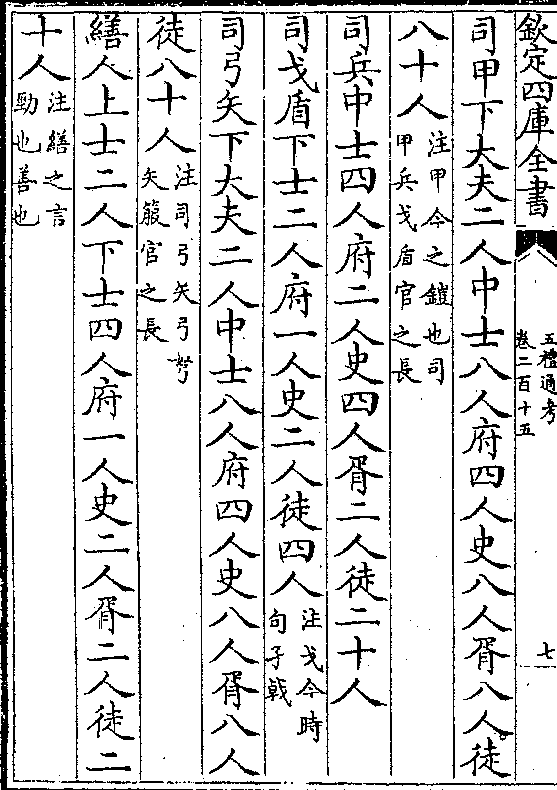 欽定四庫全書
五禮通考
卷二百十五
七
司甲下大夫二人中士八人府四人史八人胥八人徒
八十人注甲今之鎧也司甲兵戈盾官之長
司兵中士四人府二人史四人胥二人徒二十人
司戈盾下士二人府一人史二人徒四人注戈今時句子戟
司弓矢下大夫二人中士八人府四人史八人胥八人
徒八十人注司弓矢弓弩矢箙官之長
繕人上士二人下士四人府一人史二人胥二人徒二
十人注繕之言勁也善也